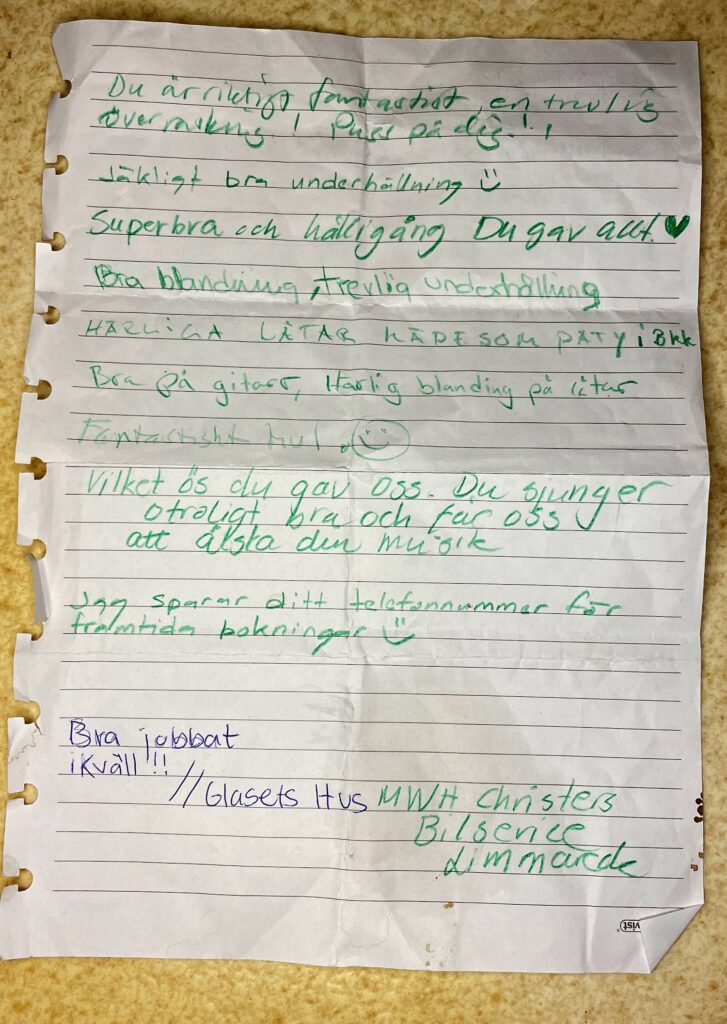 Du är riktigt fantastist, en trevlig
överraskning! Puss på dig!!
Jäkligt bra underhållning
Superbra och hålligång Du gav allt! ♥
Bra blandning, trevlig underhållning
HÄRLIGA LÅTAR SOM PATY i BKK
Bra på gitarr, Härlig blanding på låtar
Fantastisht kul.
Vilket ös du gav oss. Du sjunger
otroligt bra och får oss
att älska den musik
Jag sparar ditt telefonnummer för
framtida bokningar
Bra jobbat
ikväll!!
//Glasets Hus MWH Christers
Bilservice
Limmared
vist